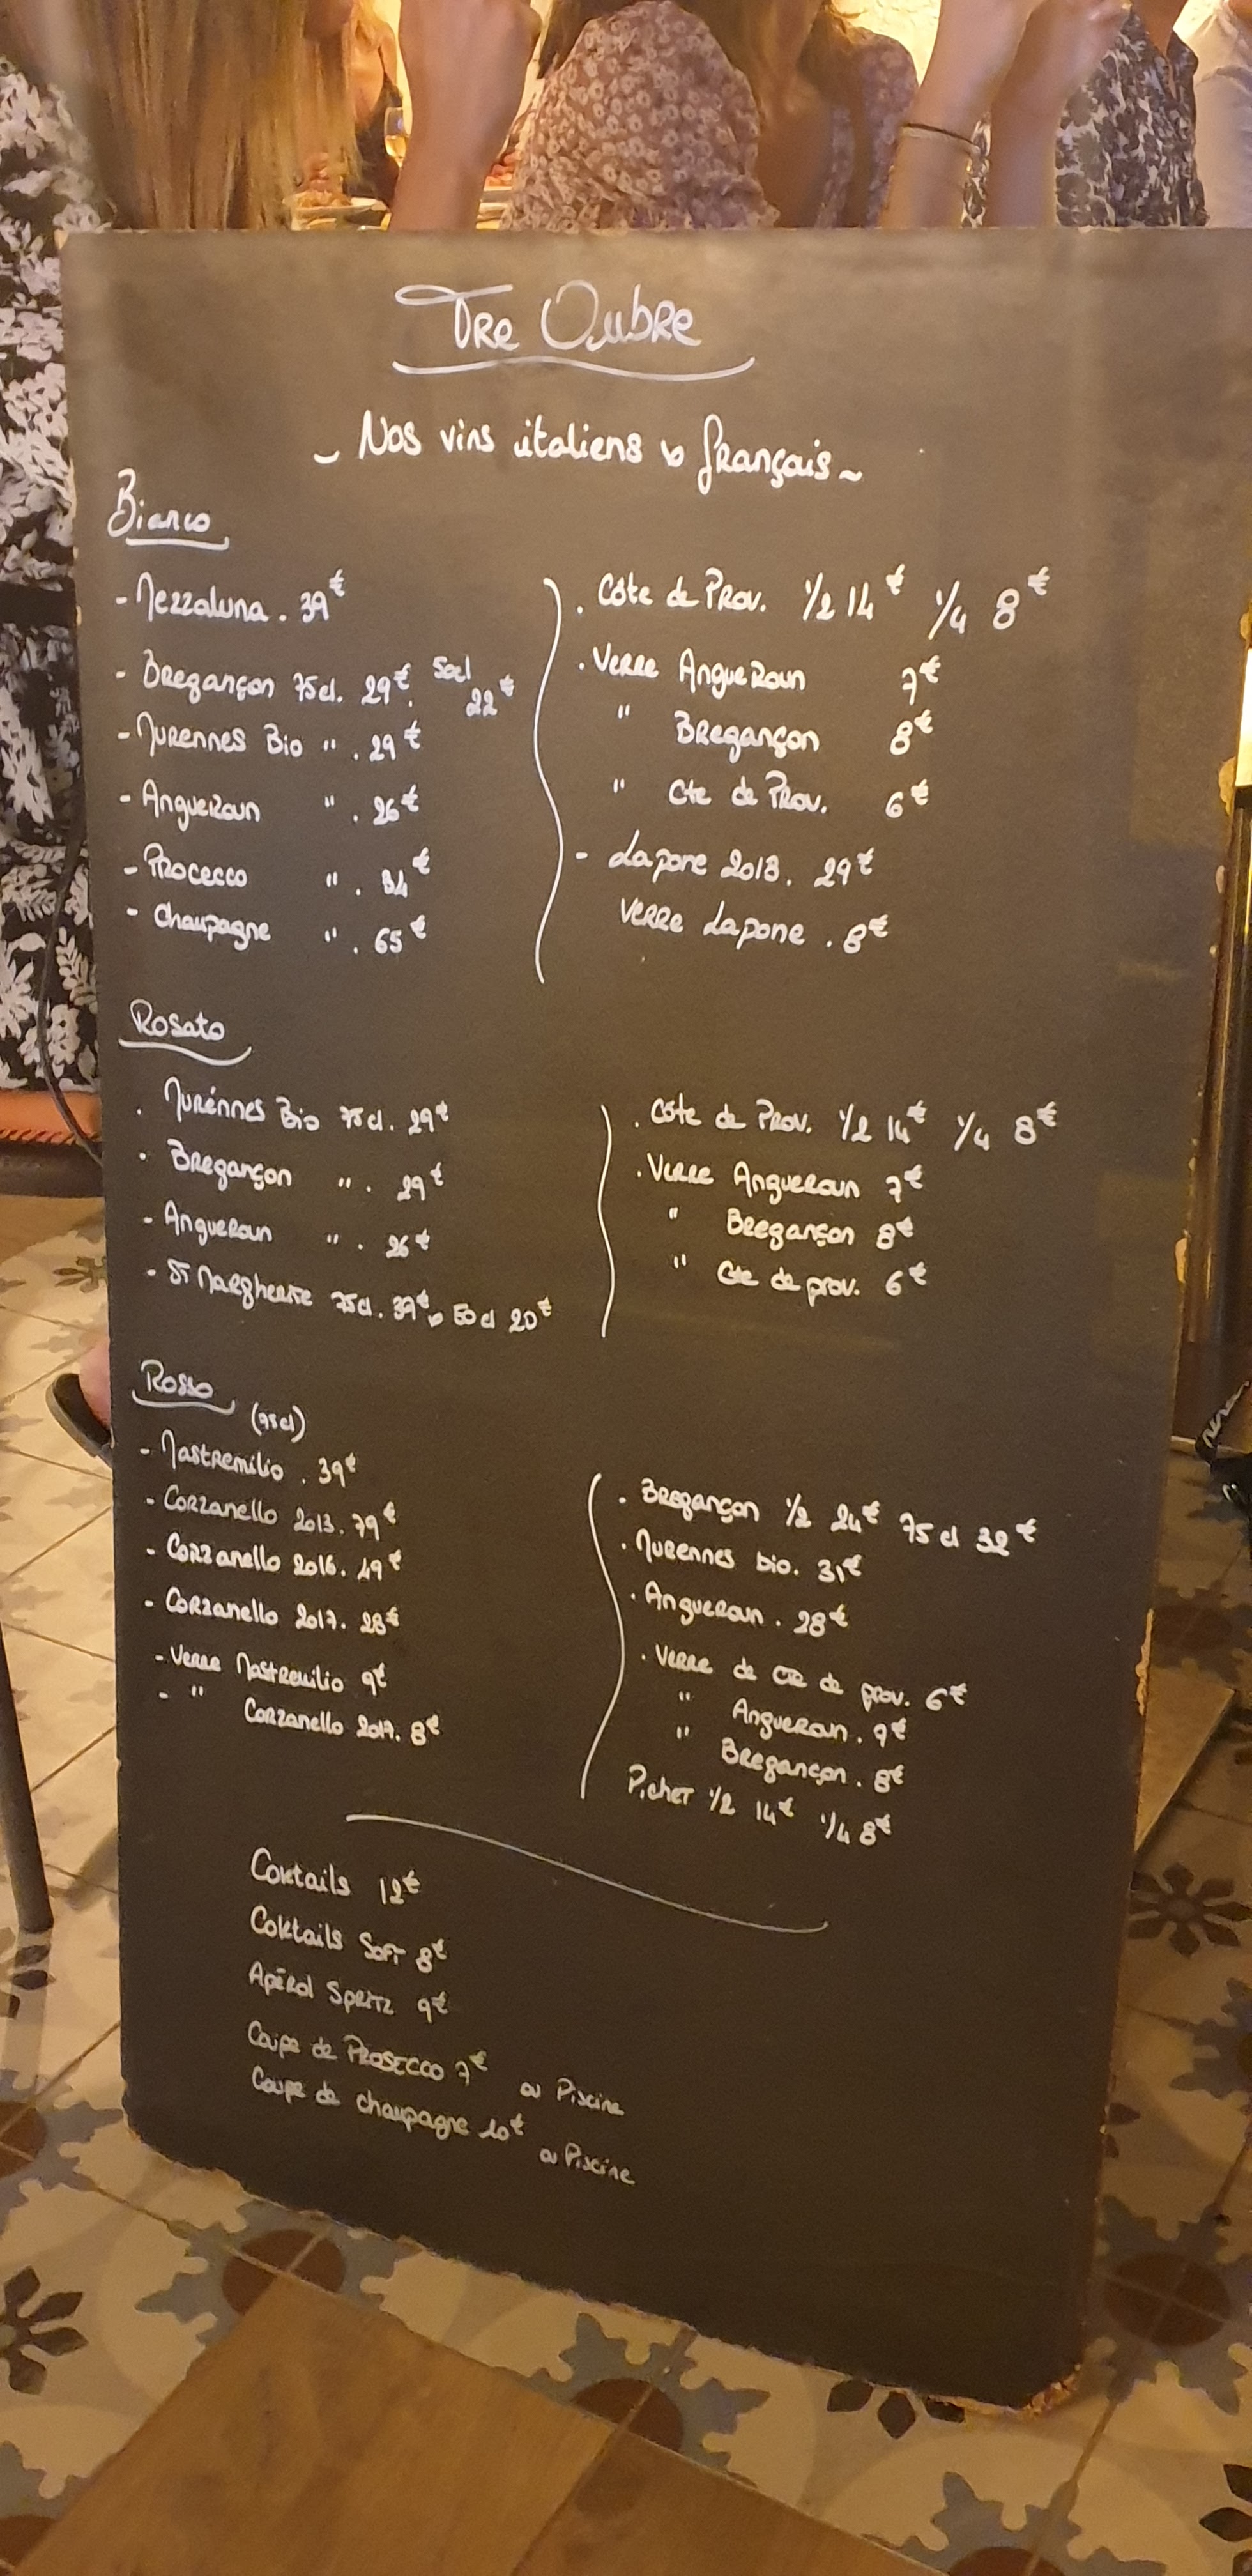 Tre Ombre
~ Nos vins italiens & français ~
Bianco
- Mezzaluna . 39€
- Bregançon 75cl. 29€. 50cl 22€
- Murennes Bio " . 29€
- Angueroun " . 26€
- Procecco " . 34€
- Champagne " . 65€
. Côte de Prov. 1/2 14€ 1/4 8€
. Verre Angueroun 7€
" Bregançon 8€
" Cte de Prov. 6€
- Lapone 2018. 29€
Verre Lapone . 8€
Rosato
. Murénnes Bio 75cl. 29€
. Bregançon " . 29€
- Angueroun " . 26€
- St Margherite 75cl. 39€ & 50cl 20€
. Côte de Prov. 1/2 14€ 1/4 8€
. Verre Angueroun 7€
" Bregançon 8€
" Cte de prov. 6€
Rosso
(75cl)
- Mastremilio . 39€
- Corzanello 2013. 79€
- Corzanello 2016. 49€
- Corzanello 2017. 28€
- Verre Mastremilio 9€
- " Corzanello 2017. 8€
. Bregançon 1/2 24€ 75cl 32€
. Murennes bio. 31€
. Angueroun . 28€
. Verre de Cte de prov. 6€
" Angueroun . 9€
" Bregançon . 8€
Pichet 1/2 14€ 1/4 8€
Coktails 12€
Coktails Soft 8€
Apérol Spritz 9€
Coupe de Prosecco 7€ ou Piscine
Coupe de champagne 10€ ou Piscine